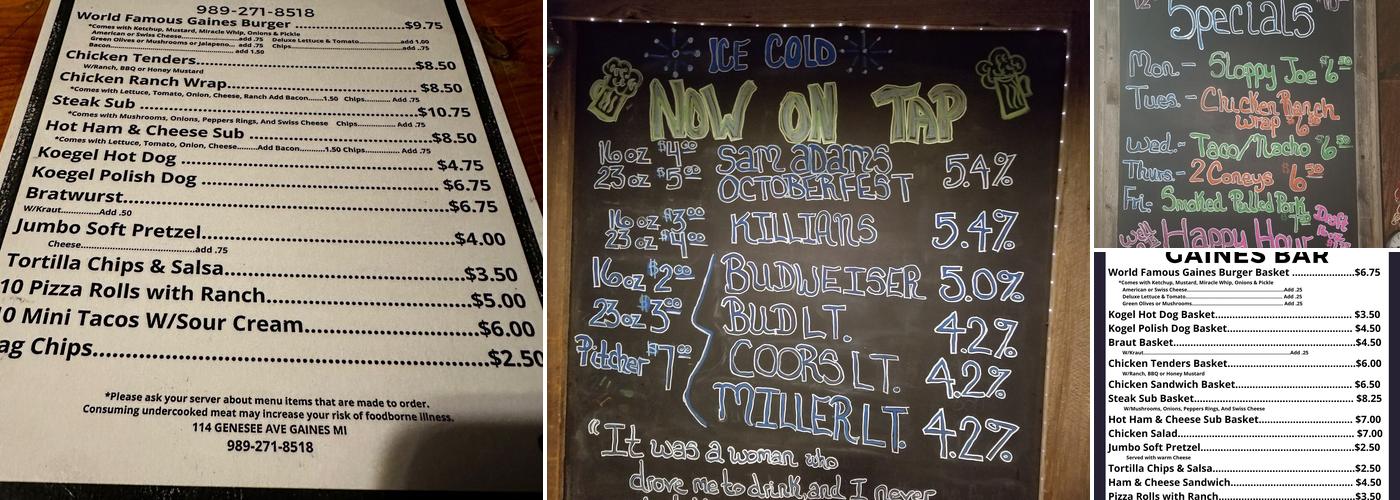 989-271-8518
World Famous Gaines Burger ........$9.75
*Comes with Ketchup, Mustard, Miracle Whip, Onions & Pickle
American or Swiss Cheese........add .75 Deluxe Lettuce & Tomato........add 1.00
Green Olives or Mushrooms or Jalapeno... add .75 Chips........add .75
Bacon........ add 1.50
Chicken Tenders........$8.50
W/Ranch, BBQ or Honey Mustard
Chicken Ranch Wrap........$8.50
*Comes with Lettuce, Tomato, Onion, Cheese, Ranch Add Bacon........1.50 Chips........ Add .75
Steak Sub ........$10.75
*Comes with Mushrooms, Onions, Peppers Rings, And Swiss Cheese Chips........ Add .75
Hot Ham & Cheese Sub ........$8.50
*Comes with Lettuce, Tomato, Onion, Cheese........Add Bacon........1.50 Chips........ Add .75
Koegel Hot Dog ........$4.75
Koegel Polish Dog ........$6.75
Bratwurst........$6.75
W/Kraut........Add .50
Jumbo Soft Pretzel........$4.00
Cheese........add .75
Tortilla Chips & Salsa........$3.50
10 Pizza Rolls with Ranch........$5.00
10 Mini Tacos W/Sour Cream........$6.00
ag Chips........$2.50
*Please ask your server about menu items that are made to order.
Consuming undercooked meat may increase your risk of foodborne illness.
114 GENESEE AVE GAINES MI
989-271-8518
ICE COLD
NOW ON TAP
16oz $4.00 SAM ADAMS 5.4%
23oz $5.00 OCTOBERFEST
16oz $3.00 KILLIANS 5.4%
23oz $4.00
16oz $2.00 BUDWEISER 5.0%
23oz $3.00 BUD LT. 4.2%
Pitcher $7.00 COORS LT. 4.2%
MILLER LT. 4.2%
"It was a woman who
drove me to drink, and I never
Specials
Mon.- Sloppy Joe $6.50
Tues.- Chicken Ranch
wrap
Wed.- Taco/Nacho $6.50
Thurs.- 2 Coneys $6.50
Fri.- Smoked Pulled Pork
Happy Hour
GAINES BAR
World Famous Gaines Burger Basket ........$6.75
*Comes with Ketchup, Mustard, Miracle Whip, Onions & Pickle
American or Swiss Cheese........Add .25
Deluxe Lettuce & Tomato........Add .25
Green Olives or Mushrooms........Add .25
Kogel Hot Dog Basket........$3.50
Kogel Polish Dog Basket........$4.50
Braut Basket........$4.50
W/Kraut........Add .25
Chicken Tenders Basket........$6.00
W/Ranch, BBQ or Honey Mustard
Chicken Sandwich Basket........$6.50
Steak Sub Basket........$8.25
W/Mushrooms, Onions, Peppers Rings, And Swiss Cheese
Hot Ham & Cheese Sub Basket........$7.00
Chicken Salad........$7.00
Jumbo Soft Pretzel........$2.50
Served with warm Cheese
Tortilla Chips & Salsa........$2.50
Ham & Cheese Sandwich........$4.50
Pizza Rolls with Ranch........$3.50